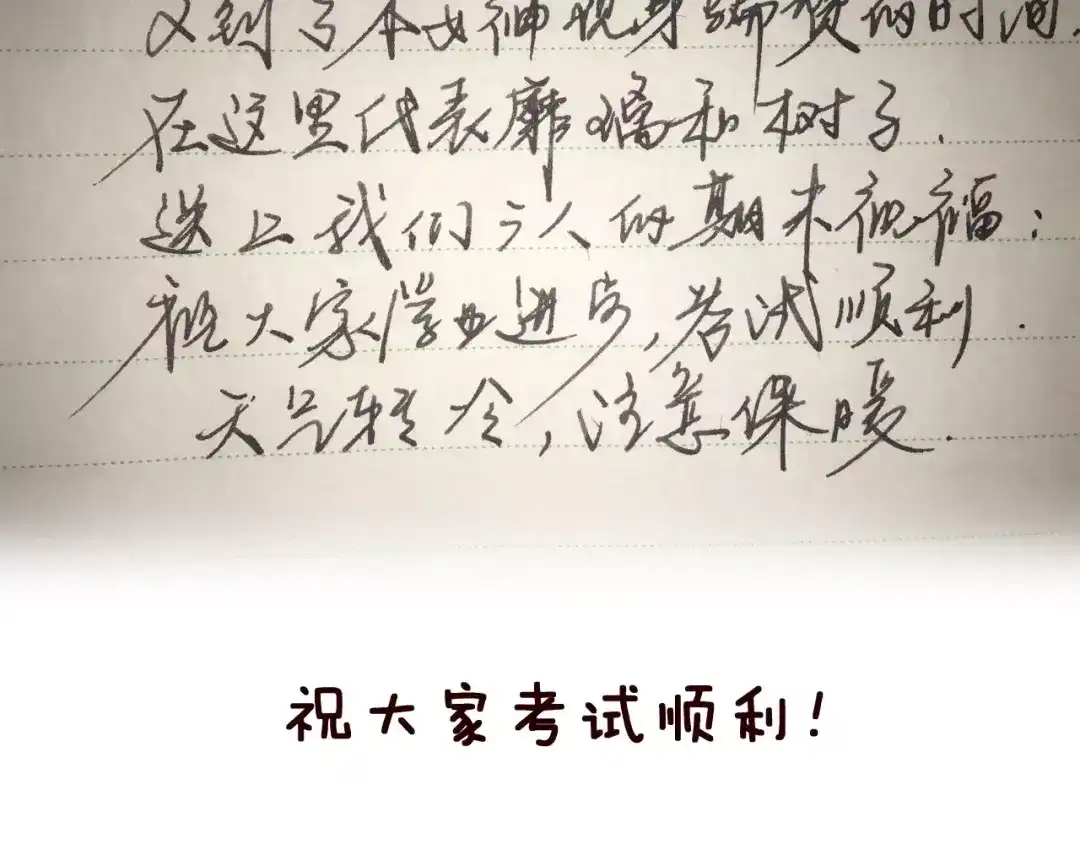 又到了本女神现身编质的时间.
在这里代表靡璃和树子.
送上我们三人的期末祝福:
祝大家学业进步,考试顺利.
天气转冷,注意保暖.
祝大家考试顺利!